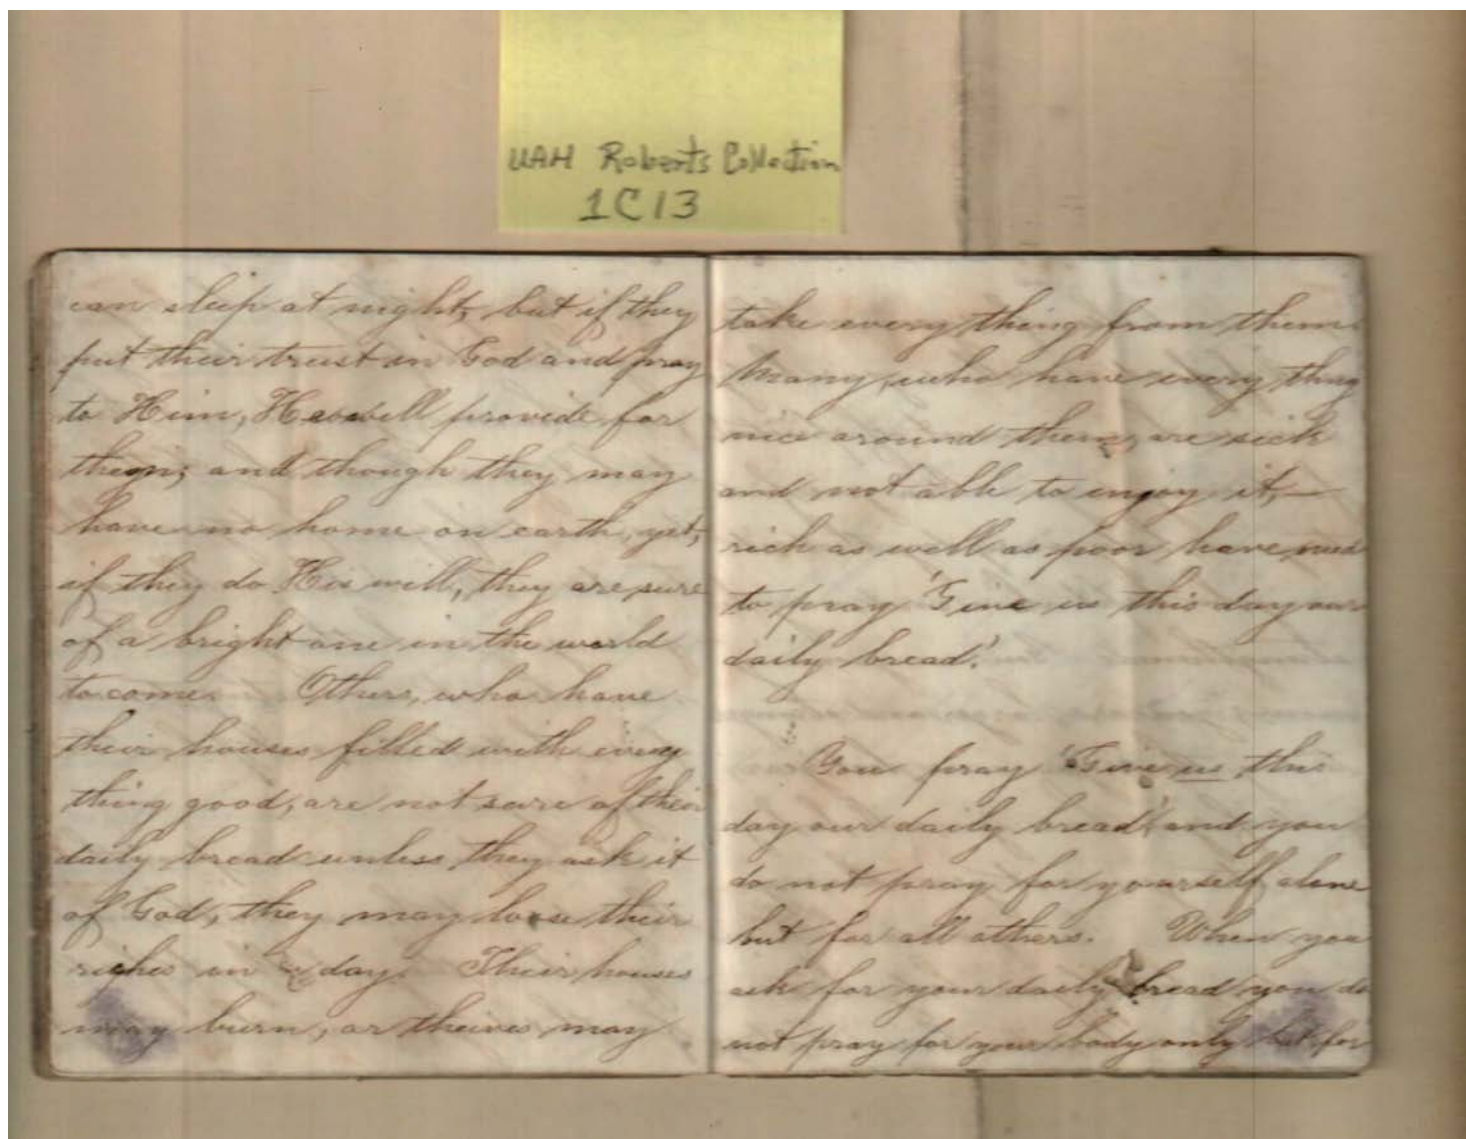 UAH Roberts Collection
1C13
can sleep at night, but if they
put their trust in God and pray
to Him, He will provide for
them; and though they may
have no home on earth, yet,
if they do His will, they are sure
of a bright one in the world
to come. Others, who have
their houses filled with every
thing good, are not sure of their
daily bread unless they ask it
of God, they may loose their
riches in a day. Their houses
may burn, or theives may
take every thing from them.
Many, who have every thing
nice around them, are sick
and not able to enjoy it,—
rich as well as poor have need
to pray 'Give us this day our
daily bread.'
You pray 'Give us this
day our daily bread' and you
do not pray for yourself alone
but for all others. When you
ask for your daily bread you do
not pray for your body only but for